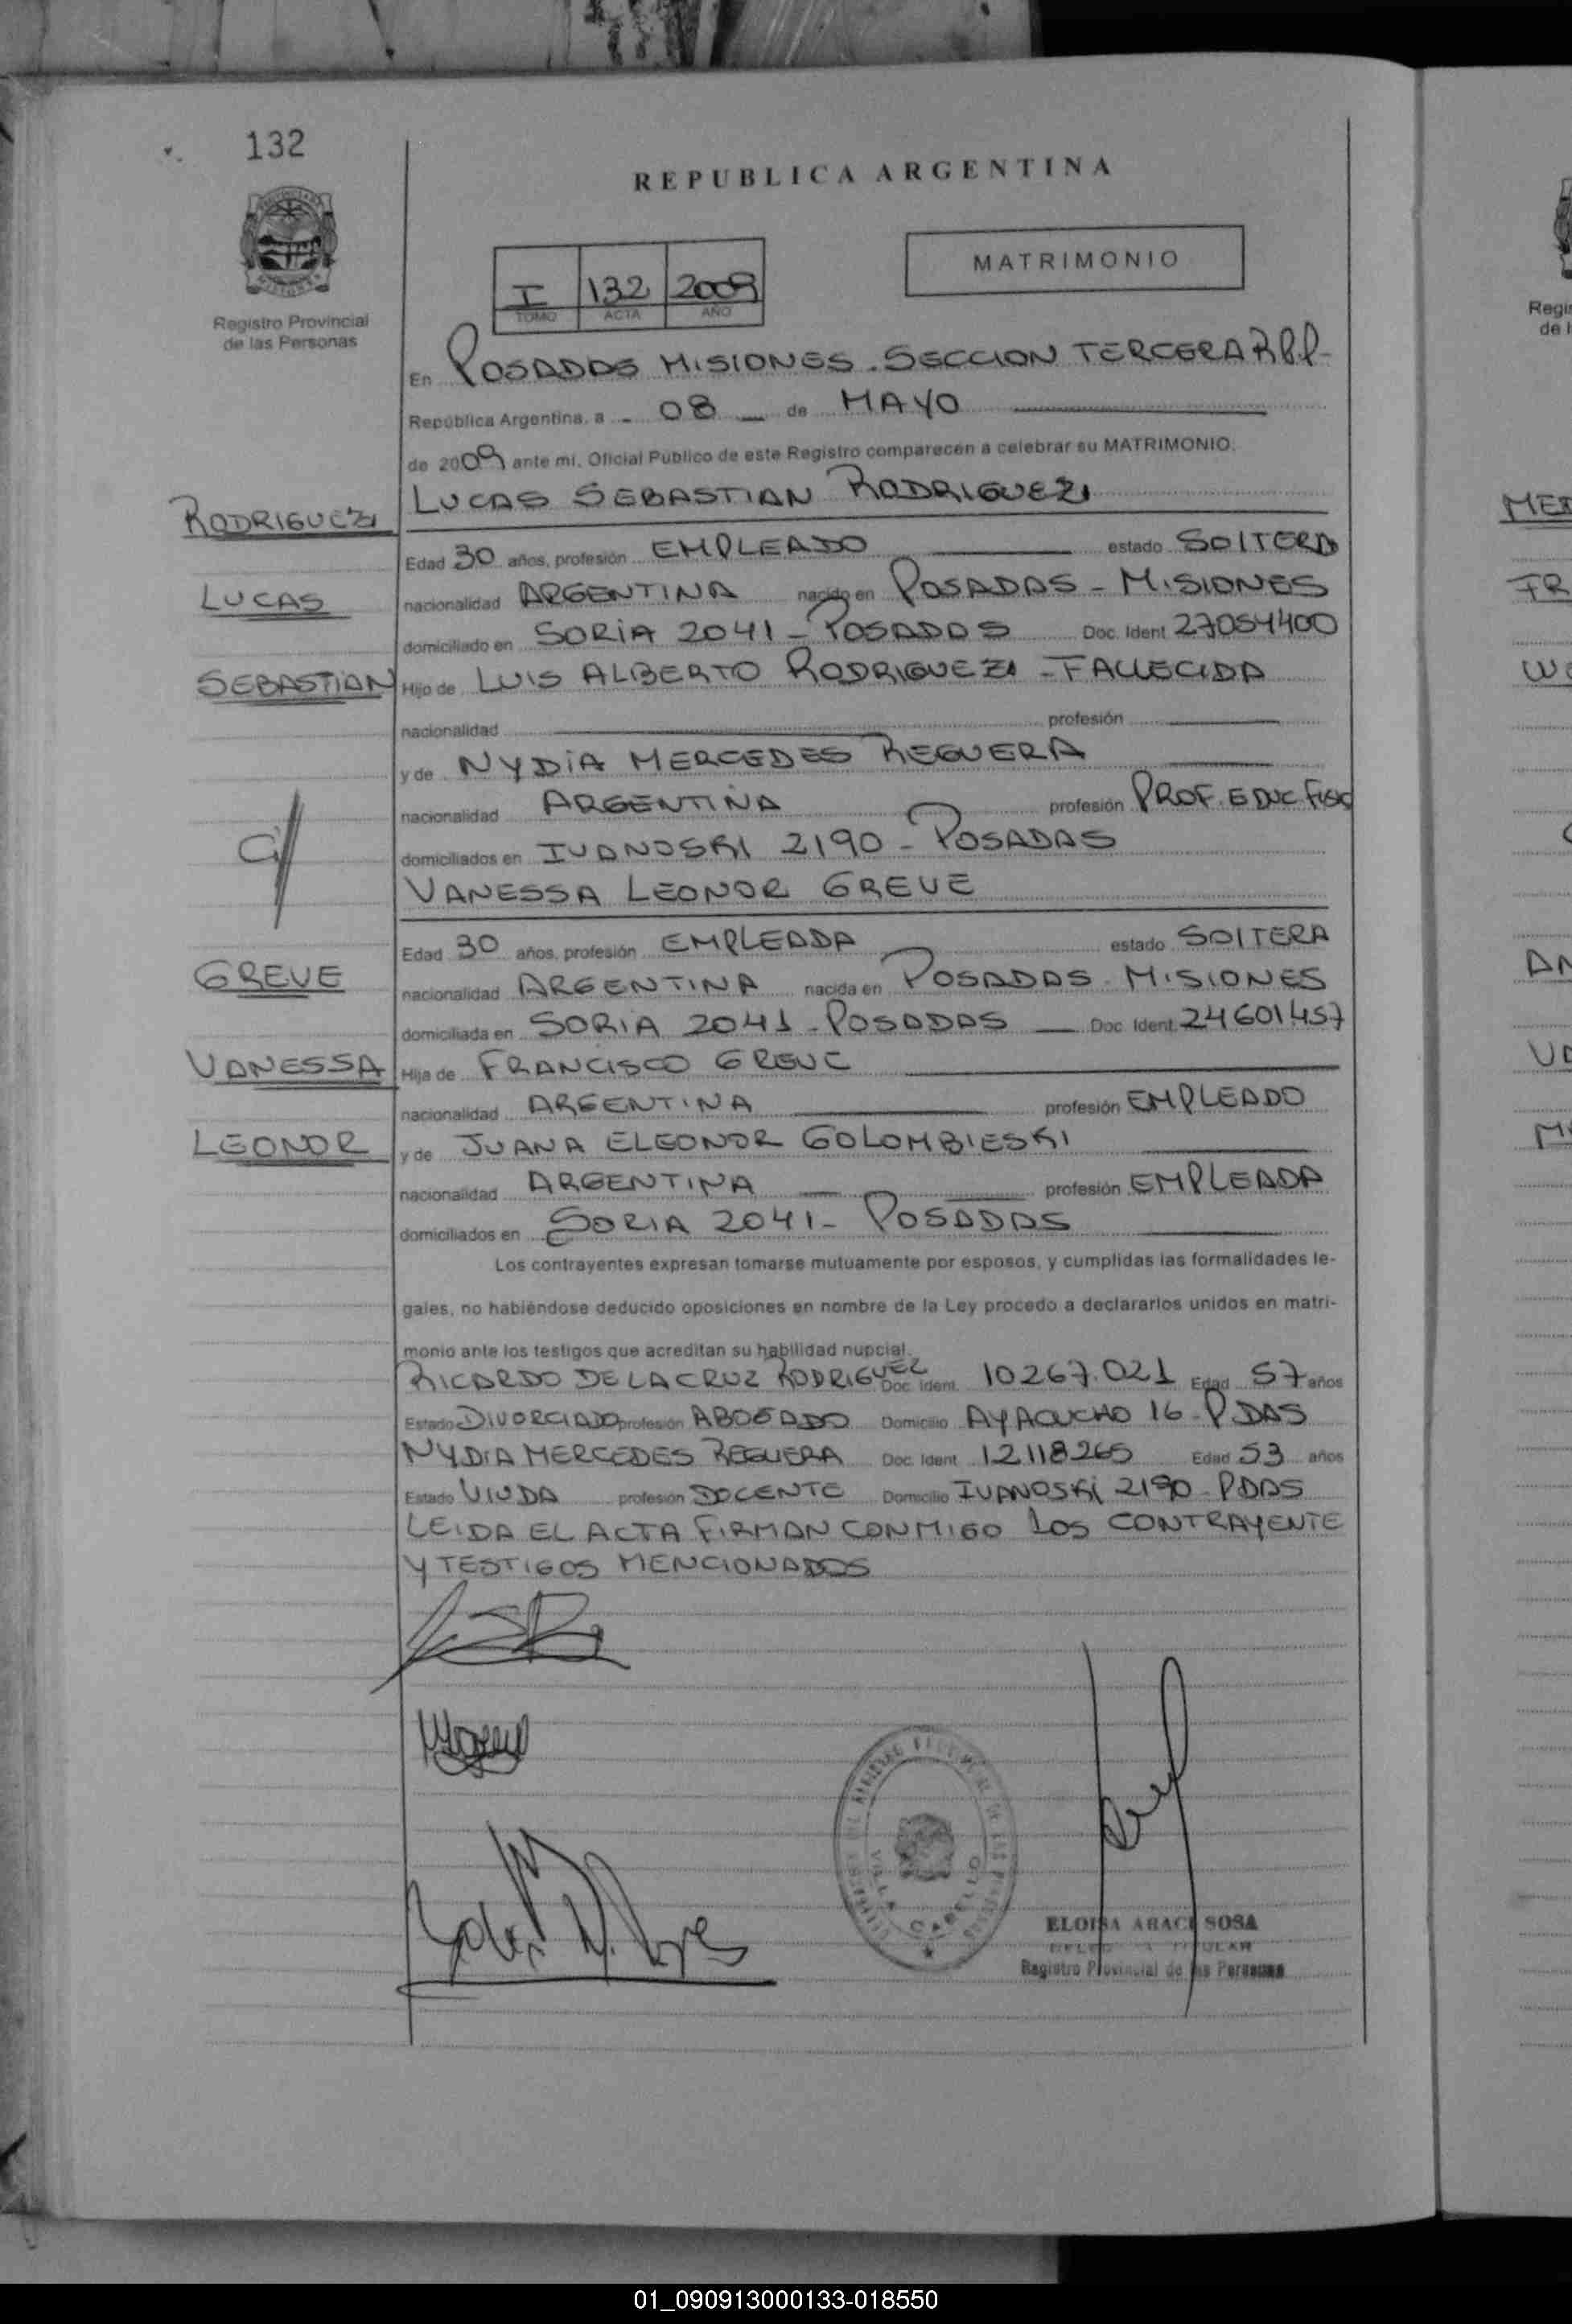 132
REPUBLICA ARGENTINA
MATRIMONIO
I 132 2009
TOMO ACTA AÑO
Registro Provincial
de las Personas
En POSADAS MISIONES. SECCION TERCERA R.P.P-
República Argentina, a - 08 — de MAYO
de 2009 ante mi, Oficial Público de este Registro comparecen a celebrar su MATRIMONIO.
LUCAS SEBASTIAN RODRIGUEZ
RODRIGUEZ
Edad 30 años, profesión EMPLEADO estado SOLTERO
LUCAS
nacionalidad ARGENTINA nacido en POSADAS - MISIONES
domiciliado en SORIA 2041 - POSADAS Doc. Ident 27054400
SEBASTIAN
Hijo de LUIS ALBERTO RODRIGUEZ - FALLECIDA
nacionalidad profesión
y de NYDIA MERCEDES REGUERA
nacionalidad ARGENTINA profesión PROF. EDUC FISIC
C/
domiciliados en IVANOSKI 2190 - POSADAS
VANESSA LEONOR GREVE
Edad 30 años, profesión EMPLEADA estado SOLTERA
GREVE
nacionalidad ARGENTINA nacida en POSADAS. MISIONES
domiciliada en SORIA 2041 - POSADAS — Doc Ident. 24601457
VANESSA
Hija de FRANCISCO GREVE
nacionalidad ARGENTINA profesión EMPLEADO
LEONOR
y de JUANA ELEONOR GOLOMBIESKI
nacionalidad ARGENTINA profesión EMPLEADA
domiciliados en SORIA 2041 - POSADAS
Los contrayentes expresan tomarse mutuamente por esposos, y cumplidas las formalidades le-
gales, no habiéndose deducido oposiciones en nombre de la Ley procedo a declararlos unidos en matri-
monio ante los testigos que acreditan su habilidad nupcial.
RICARDO DE LA CRUZ RODRIGUEZ Doc. Ident. 10267.021 Edad 57 años
Estado DIVORCIADO profesión ABOGADO Domicilio AYACUCHO 16 - PDAS
NYDIA MERCEDES REGUERA Doc. Ident 12118265 Edad 53 años
Estado VIUDA profesión DOCENTE Domicilio IVANOSKI 2190 - PDAS
LEIDA EL ACTA FIRMAN CONMIGO LOS CONTRAYENTE
Y TESTIGOS MENCIONADOS
VILLA CABELLO
ELOISA ARACI SOSA
Registro Provincial de las Personas
Regi
de l
MED
FR
AN
VA
01_090913000133-018550